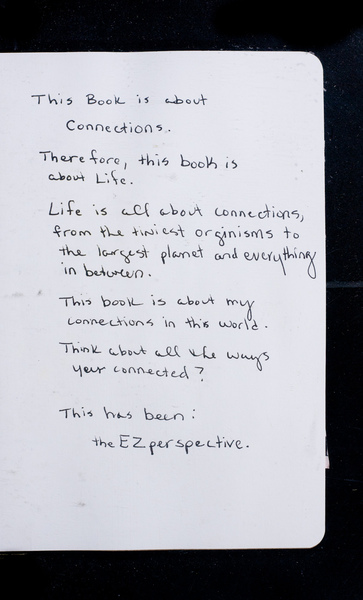 This Book is about
Connections.
Therefore, this book is
about Life.
Life is all about connections,
from the tiniest orginisms to
the largest planet and everything
in between.
This book is about my
connections in this world.
Think about all the ways
your connected?
This has been:
the EZperspective.